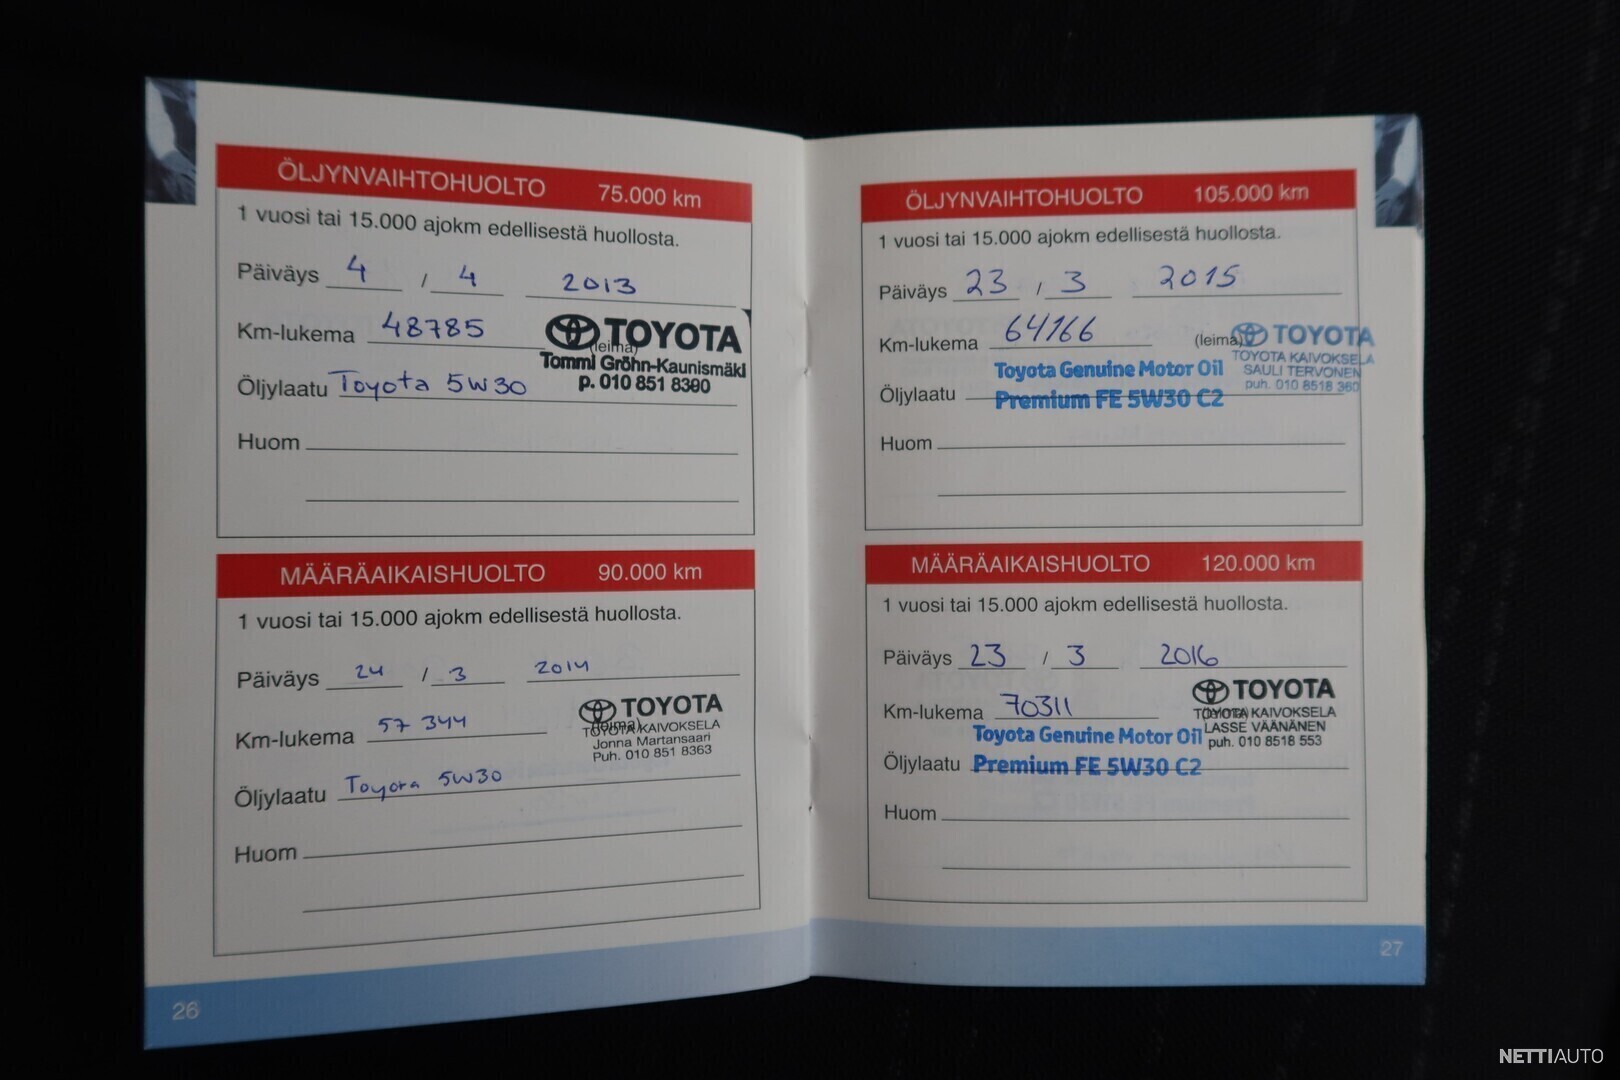 ÖLJYNVAIHTOHUOLTO 75.000 km
1 vuosi tai 15.000 ajokm edellisestä huollosta.
Päiväys 4 / 4 2013
Km-lukema 48785
(leima)
TOYOTA
Tommi Gröhn-Kaunismäki
p. 010 851 8390
Öljylaatu Toyota 5W30
Huom
MÄÄRÄAIKAISHUOLTO 90.000 km
1 vuosi tai 15.000 ajokm edellisestä huollosta.
Päiväys 24 / 3 2014
Km-lukema 57 344
(leima)
TOYOTA
TOYOTA KAIVOKSELA
Jonna Martansaari
Puh. 010 851 8363
Öljylaatu Toyota 5W30
Huom
26
ÖLJYNVAIHTOHUOLTO 105.000 km
1 vuosi tai 15.000 ajokm edellisestä huollosta.
Päiväys 23 / 3 2015
Km-lukema 64166
(leima)
TOYOTA
TOYOTA KAIVOKSELA
SAULI TERVONEN
puh. 010 8518 360
Öljylaatu
Toyota Genuine Motor Oil
Premium FE 5W30 C2
Huom
MÄÄRÄAIKAISHUOLTO 120.000 km
1 vuosi tai 15.000 ajokm edellisestä huollosta.
Päiväys 23 / 3 2016
Km-lukema 70311
(leima)
TOYOTA
TOYOTA KAIVOKSELA
LASSE VÄÄNÄNEN
puh. 010 8518 553
Öljylaatu
Toyota Genuine Motor Oil
Premium FE 5W30 C2
Huom
27
NETTIAUTO